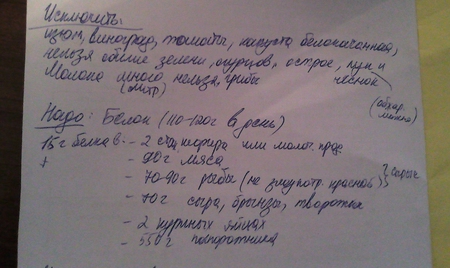 Исключить:
изюм, виноград, томаты, капуста белокочанная,
нельзя обилие зелени, огурцов, острое, лук и
Молока много нельзя, грибы чеснок
(литр) (обжар. можно)
Надо: Белок (110-120г в день)
15г белка в - 2 кефира или молоч. прод.
+ - 90г мяса
- 70-90г рыбы (не злоупотр. красной) } сырые
- 70г сыра, брынзы, творожка
- 2 куриных яйцах
- 550г